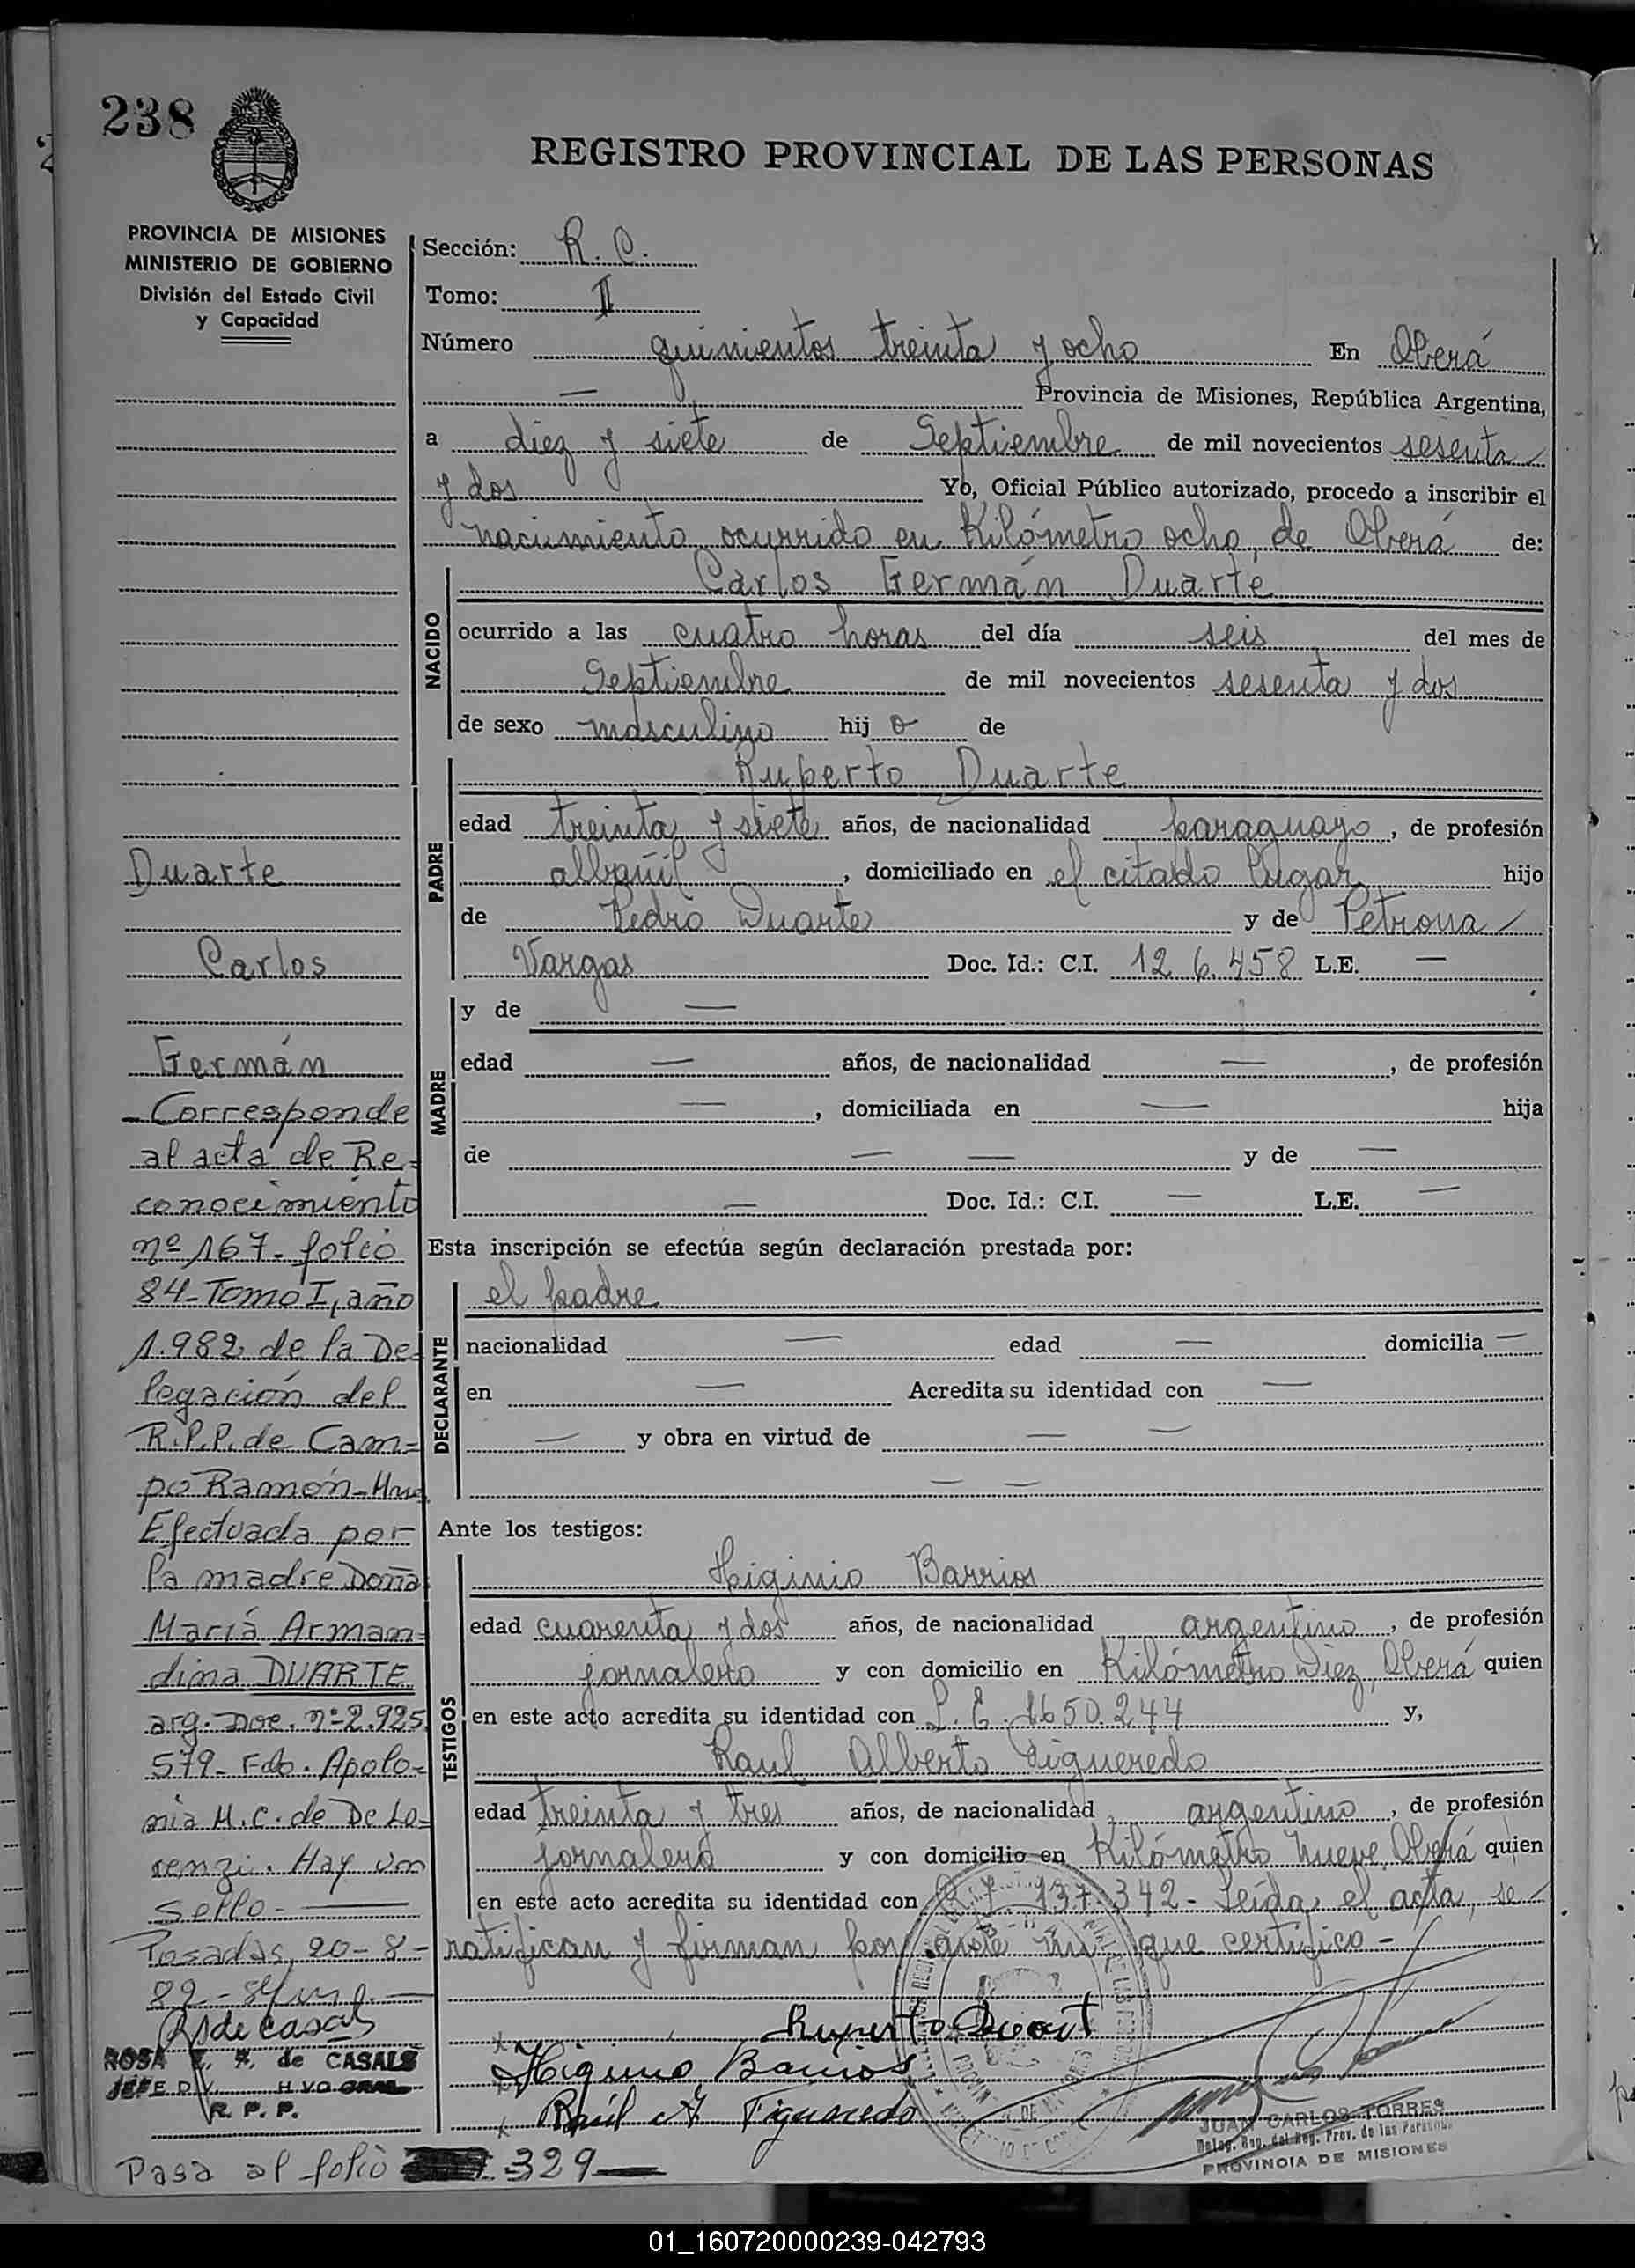 238
REGISTRO PROVINCIAL DE LAS PERSONAS
PROVINCIA DE MISIONES
MINISTERIO DE GOBIERNO
División del Estado Civil
y Capacidad
Sección: R. C.
Tomo: II
Número quinientos treinta y ocho En Oberá
— Provincia de Misiones, República Argentina,
a diez y siete de Septiembre de mil novecientos sesenta
y dos Yo, Oficial Público autorizado, procedo a inscribir el
nacimiento ocurrido en Kilómetro ocho, de Oberá de:
NACIDO
Carlos Germán Duarte
ocurrido a las cuatro horas del día seis del mes de
Septiembre de mil novecientos sesenta y dos
de sexo masculino hij o de
PADRE
Ruperto Duarte
edad treinta y siete años, de nacionalidad paraguayo, de profesión
albañil, domiciliado en el citado lugar hijo
de Pedro Duarte y de Petrona
Vargas Doc. Id.: C.I. 126.458 L.E. —
MADRE
y de —
edad — años, de nacionalidad —, de profesión
—, domiciliada en — hija
de — — y de —
— Doc. Id.: C.I. — L.E. —
Esta inscripción se efectúa según declaración prestada por:
DECLARANTE
el padre
nacionalidad — edad — domicilia —
en — Acredita su identidad con —
— y obra en virtud de — —
— —
Ante los testigos:
TESTIGOS
Higinio Barrios
edad cuarenta y dos años, de nacionalidad argentino, de profesión
jornalero y con domicilio en Kilómetro Diez, Oberá quien
en este acto acredita su identidad con L. E. 1650.244 y,
Raul Alberto Figueredo
edad treinta y tres años, de nacionalidad argentino, de profesión
jornalero y con domicilio en Kilómetro nueve, Oberá quien
en este acto acredita su identidad con 137.342 - Leída el acta, se
ratifican y firman por ante mí que certifico -
Ruperto Duart
Higinio Barrios
Raúl A Figueredo
JUAN CARLOS TORRES
Deleg. Reg. del Reg. Prov. de las Personas
PROVINCIA DE MISIONES
Duarte
Carlos
Germán
- Corresponde
al acta de Re-
conocimiento
nº 167- folio
84- Tomo I, año
1.982 de la De-
legación del
R.P.P. de Cam-
po Ramón-
Efectuada por
la madre Doña
María Arman-
dina DUARTE
arg. Doc. nº 2.925.
579- Fdo. Apolo-
nia H. C. de De Lo-
renzi. Hay un
Sello-
Posadas, 20-8-
82-
R de Casals
ROSA de CASALS
JEFE
R. P. P.
Pasa al folio 329
01_160720000239-042793